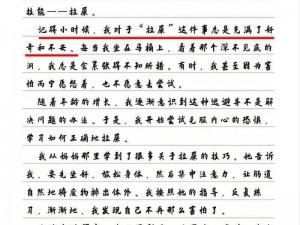 技能——拉屎。
记得小时候，我对于“拉屎”这件事总是充满了好
奇和不安。每当我坐在马桶上，看着那个深不见底的
洞，我总是会紧张得不知所措。有时，我甚至因为害
怕而宁愿憋着，也不愿意去尝试。
随着年龄的增长，我逐渐意识到这种逃避并不是解
决问题的办法。于是，我开始尝试克服内心的恐惧，
学习如何正确地拉屎。
我从妈妈那里学到了很多关于拉屎的技巧。他告诉
我，要先坐好，放松身体，然后集中注意力，让肠道
自然地将废物排出体外。我按照他的指导，反复练
习，渐渐地，我发现自己不再那么害怕了。